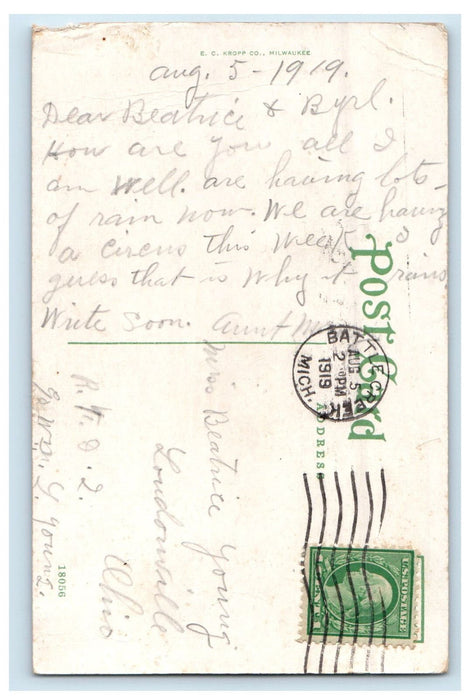 E. C. KROPP CO., MILWAUKEE
Aug. 5-1919.
Dear Beatrice & Byrl.
How are you all I
am well. are having lots
of rain now. We are having
a circus this week I
guess that is why it rains
Write soon. Aunt
Post Card
ADDRESS
BATTLE CREEK
AUG 5
2 PM
1919
MICH.
Miss Beatrice Young
Loudonville
Ohio
R. F. D. 2.
Young.
18056
U.S. POSTAGE